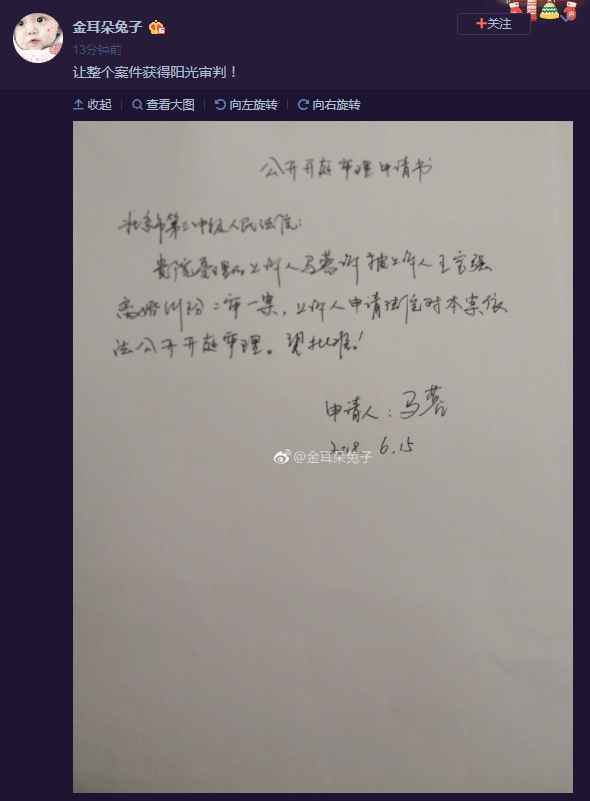 金耳朵兔子
+关注
13分钟前
让整个案件获得阳光审判！
收起 查看大图 向左旋转 向右旋转
公开开庭审理申请书
北京市第三中级人民法院：
贵院受理的上诉人马蓉诉被上诉人王宝强
离婚纠纷二审一案，上诉人申请法院对本案依
法公开开庭审理。望批准！
申请人：马蓉
2018 6.15
@金耳朵兔子